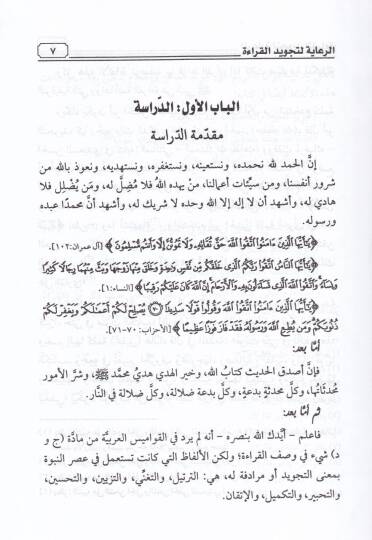 الرعاية لتجويد القراءة
٧
الباب الأول: الدّراسة
مقدّمة الدّراسة
إنَّ الحمد لله نحمده، ونستعينه، ونستغفره، ونستهديه، ونعوذ بالله من
شرور أنفسنا، ومن سيِّئات أعمالنا، منْ يهده اللهُ فلا مُضِلَّ له، ومَن يُضْلِل فلا
هادي له، وأشهد أن لا إله إلا الله وحده لا شريك له، وأشهد أنَّ محمدًا عبده
ورسوله.
﴿يَٰٓأَيُّهَا ٱلَّذِينَ ءَامَنُوا۟ ٱتَّقُوا۟ ٱللَّهَ حَقَّ تُقَاتِهِۦ وَلَا تَمُوتُنَّ إِلَّا وَأَنتُم مُّسْلِمُونَ﴾ [آل عمران:١٠٢].
﴿يَٰٓأَيُّهَا ٱلنَّاسُ ٱتَّقُوا۟ رَبَّكُمُ ٱلَّذِى خَلَقَكُم مِّن نَّفْسٍ وَٰحِدَةٍ وَخَلَقَ مِنْهَا زَوْجَهَا وَبَثَّ مِنْهُمَا رِجَالًا كَثِيرًا
وَنِسَآءً وَٱتَّقُوا۟ ٱللَّهَ ٱلَّذِى تَسَآءَلُونَ بِهِۦ وَٱلْأَرْحَامَ إِنَّ ٱللَّهَ كَانَ عَلَيْكُمْ رَقِيبًا﴾ [النساء:١].
﴿يَٰٓأَيُّهَا ٱلَّذِينَ ءَامَنُوا۟ ٱتَّقُوا۟ ٱللَّهَ وَقُولُوا۟ قَوْلًا سَدِيدًا ۝٧٠ يُصْلِحْ لَكُمْ أَعْمَٰلَكُمْ وَيَغْفِرْ لَكُمْ
ذُنُوبَكُمْ وَمَن يُطِعِ ٱللَّهَ وَرَسُولَهُۥ فَقَدْ فَازَ فَوْزًا عَظِيمًا﴾ [الأحزاب:٧٠-٧١].
أمَّا بعد:
فإنَّ أصدق الحديث كتابُ الله، وخير الهدي هديُ محمَّدٍ ﷺ، وشرَّ الأمور
مُحدَثاتُها، وكلَّ محدثةٍ بدعةٍ، وكلَّ بدعة ضلالة، وكلَّ ضلالة في النَّار.
ثم أمَّا بعد:
فاعلم - أيَّدك الله بنصره - أنه لم يرد في القواميس العربيَّة من مادَّة (ج و
د) شيء في وصف القراءة؛ ولكن الألفاظ التي كانت تستعمل في عصر النبوة
بمعنى التجويد أو مرادفة له، هي: الترتيل، والتغنِّي، والتزيين، والتحسين،
والتحبير، والتكميل، والإتقان.